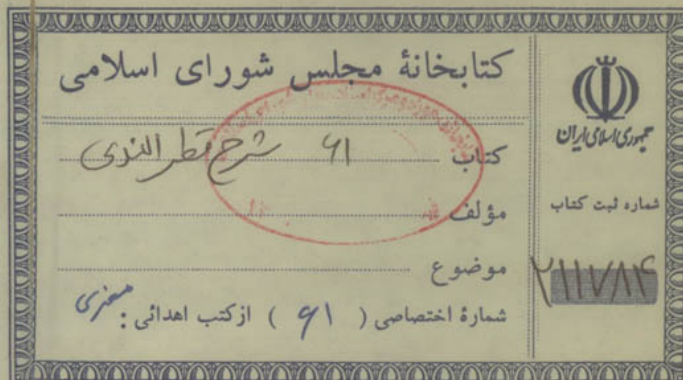 کتابخانهٔ مجلس شورای اسلامی
جمهوری اسلامی ایران
کتاب ۶۱ شرح قطر الندی
مؤلف
موضوع
شمارهٔ اختصاصی ( ۶۱ ) از کتب اهدائی :
شماره ثبت کتاب
۲۱۱۷۸۴